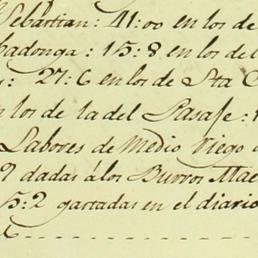 Sebastian: 41:00 en los de
badonga: 15:8 en los del
: 27:6 en los de Sta C
n los de la del Pasaje:
Labores de Medio Riego
9 dadas á los Burros Mae
5:2 gastadas en el diario